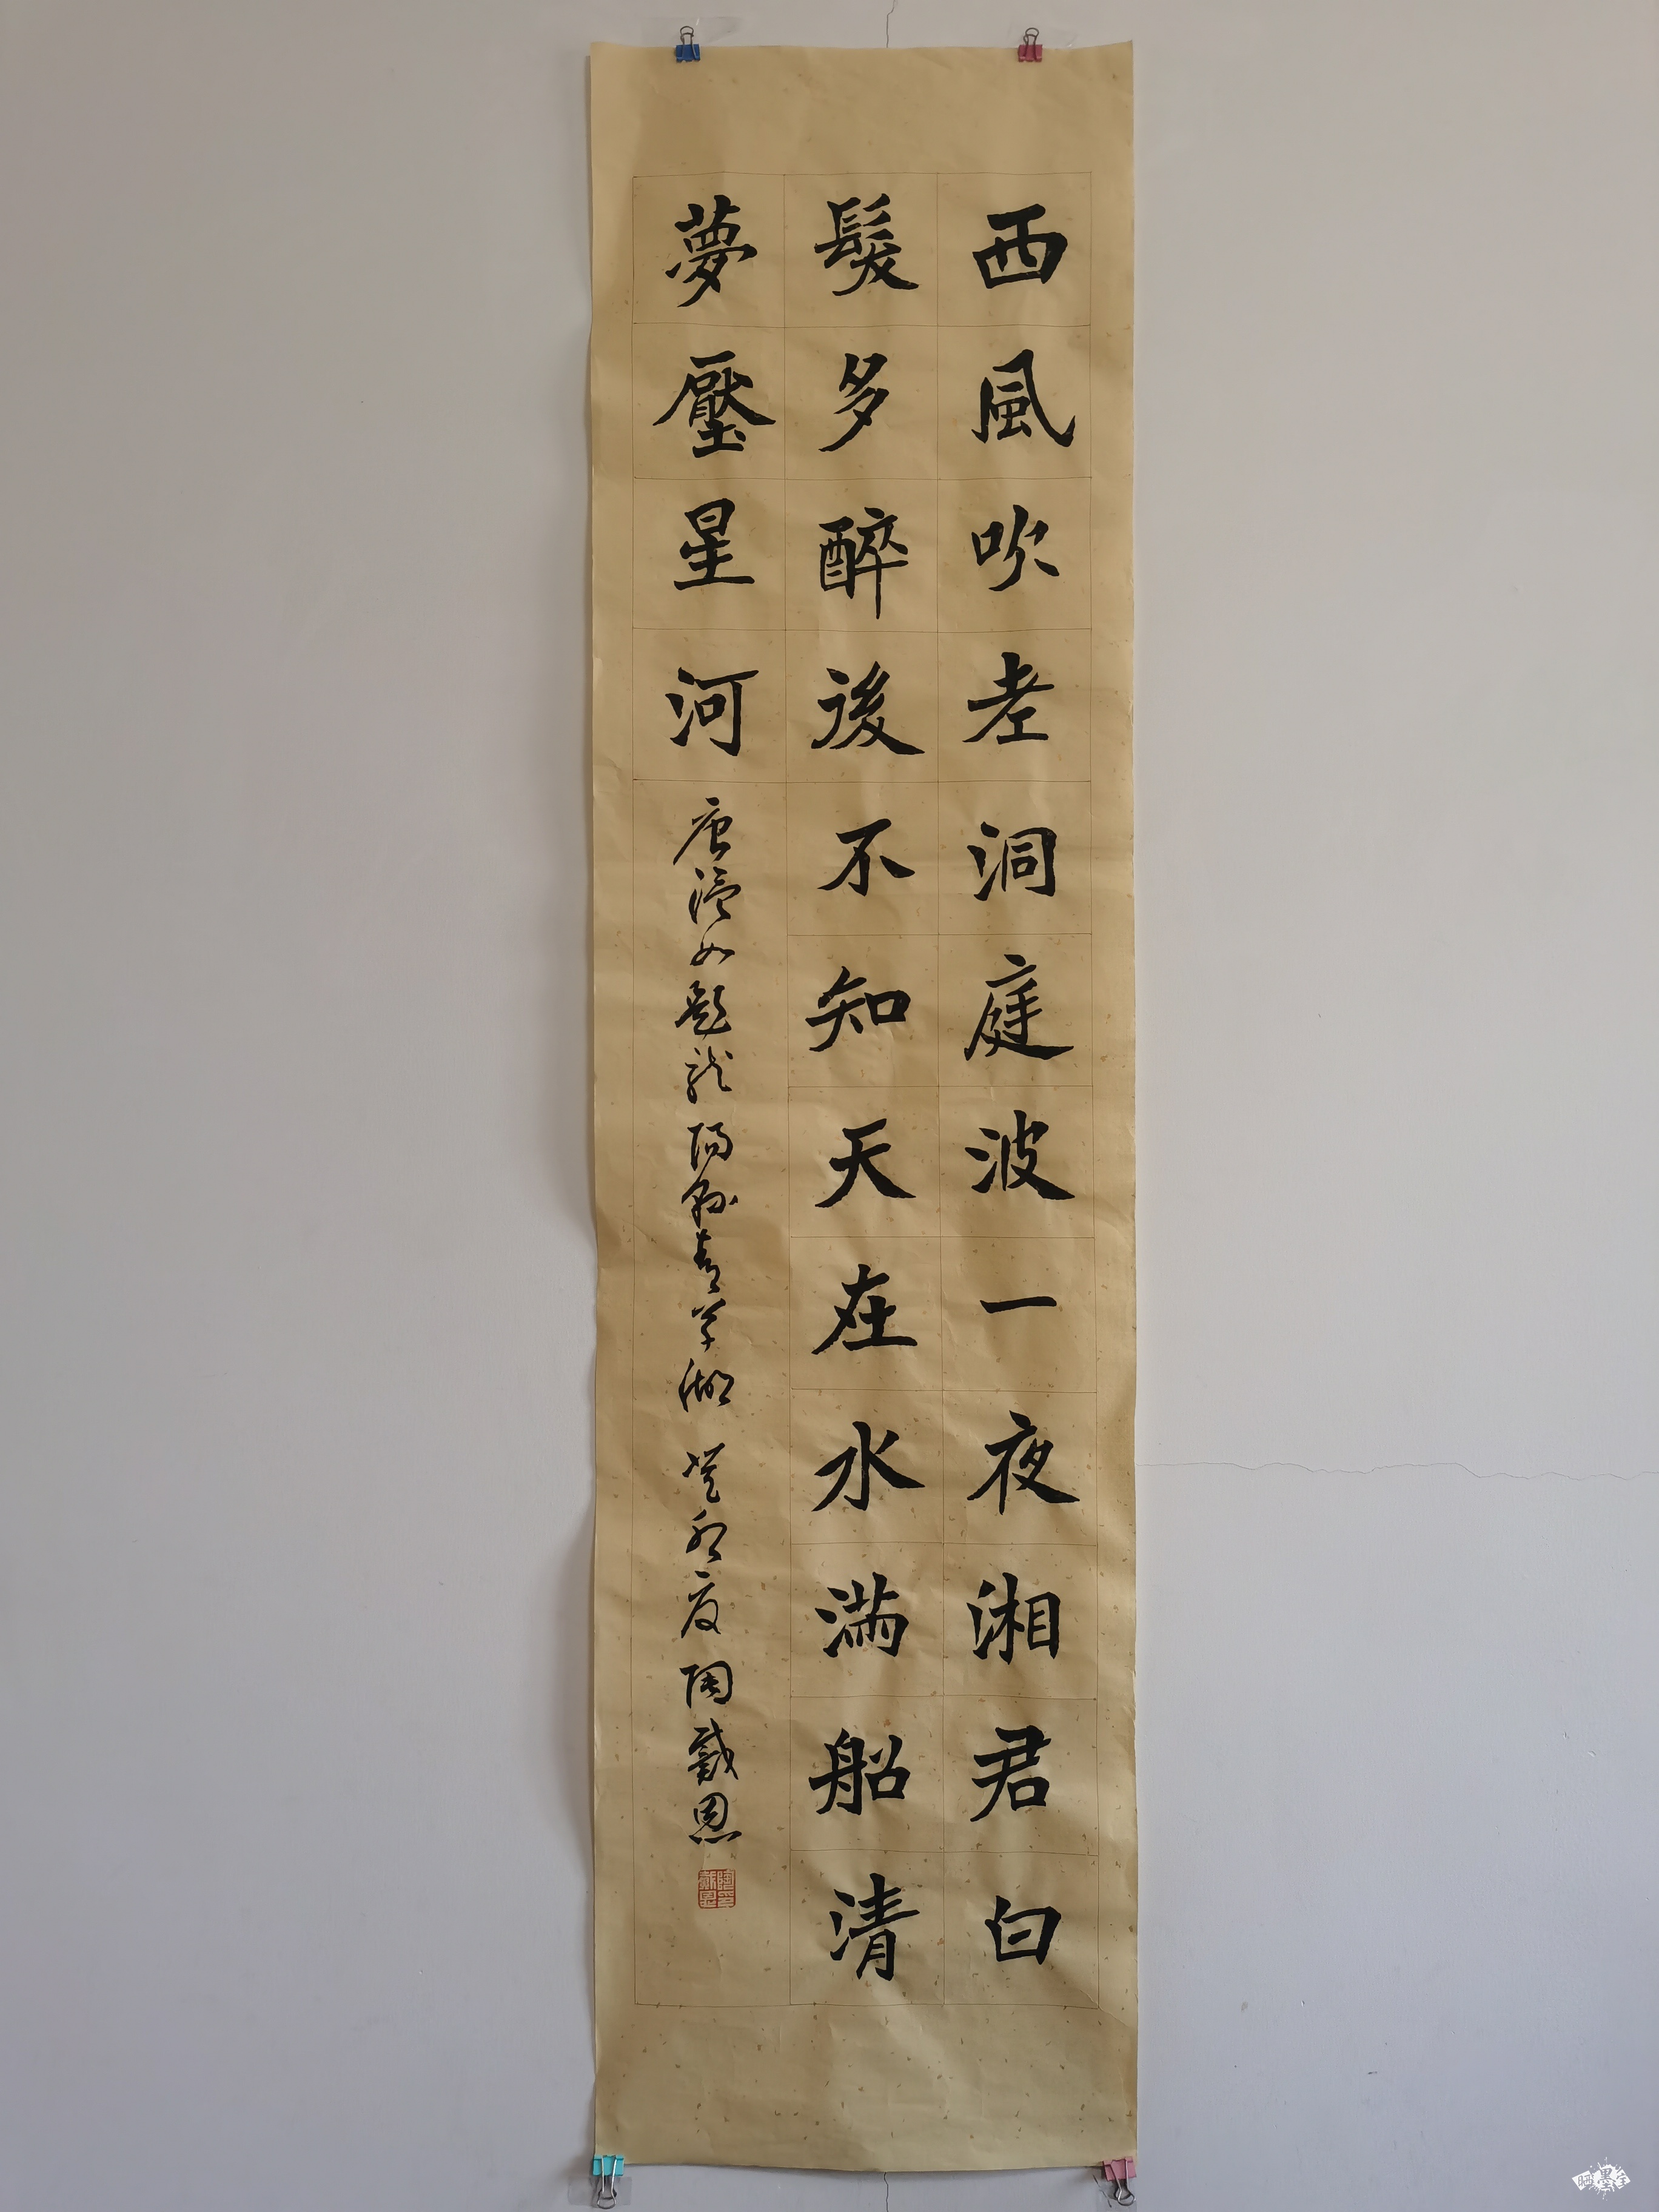 西風吹老洞庭波一夜湘君白
髮多醉後不知天在水滿船清
夢壓星河
唐溫如題龍陽縣青草湖 癸卯夏陶戴恩
陶戴恩印
晒墨宝